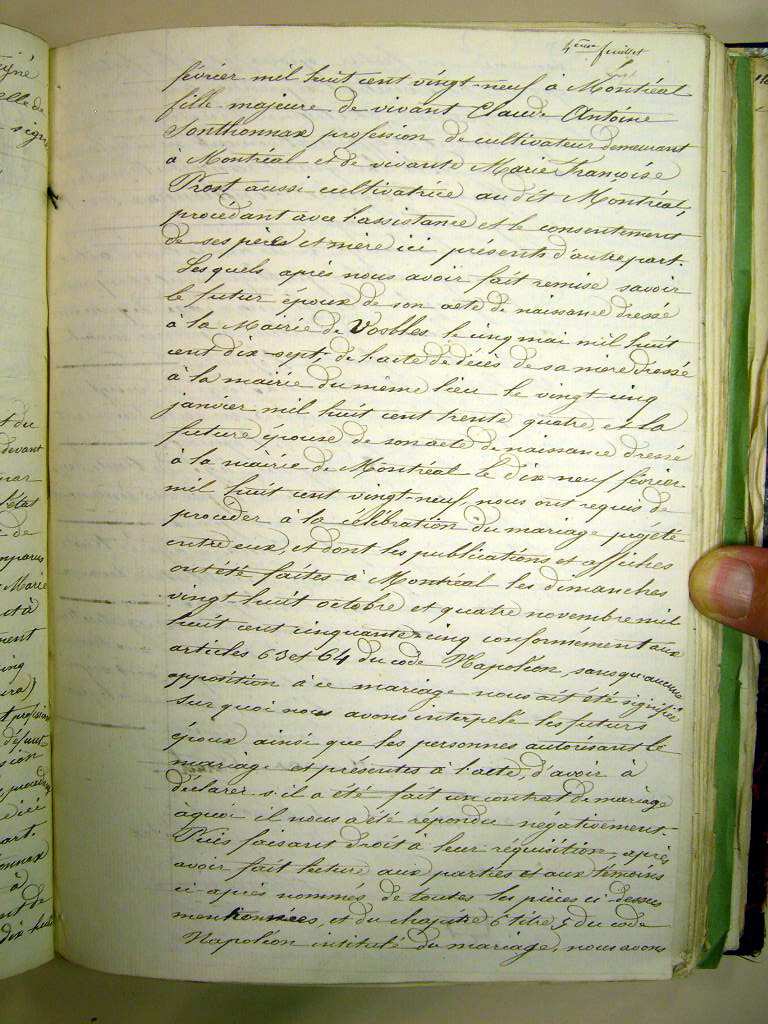 4ème feuillet
février mil huit cent vingt-neuf à Montréal
fille majeure de vivant Claude Antoine
Sonthonnax profession de cultivateur demeurant
à Montréal et de vivante Marie Françoise
Prost aussi cultivatrice au dit Montréal,
procédant avec l'assistance et le consentement
de ses père et mère ici présents d'autre part.
Lesquels après nous avoir fait remise savoir
le futur époux de son acte de naissance dressé
à la Mairie de Vosbles le cinq mai mil huit
cent dix-sept, de l'acte de décès de sa mère dressé
à la mairie du même lieu le vingt cinq
janvier mil huit cent trente quatre, et la
future épouse de son acte de naissance dressé
à la mairie de Montréal le dix-neuf février
mil huit cent vingt-neuf, nous ont requis de
procéder à la célébration du mariage projeté
entre eux, et dont les publications et affiches
ont été faites à Montréal les dimanches
vingt huit octobre et quatre novembre mil
huit cent cinquante-cinq conformément aux
articles 63 et 64 du code Napoléon, sans qu'aucune
opposition à ce mariage nous ait été signifiée
sur quoi nous avons interpelé les futurs
époux ainsi que les personnes autorisant le
mariage et présentes à l'acte, d'avoir à
déclarer s'il a été fait un contrat de mariage
à quoi il nous a été répondu négativement.
Puis faisant droit à leur réquisition, après
avoir fait lecture aux parties et aux témoins
ci-après nommés de toutes les pièces ci-dessus
mentionnées, et du chapitre 6 titre 5 du code
Napoléon intitulé du mariage, nous avons